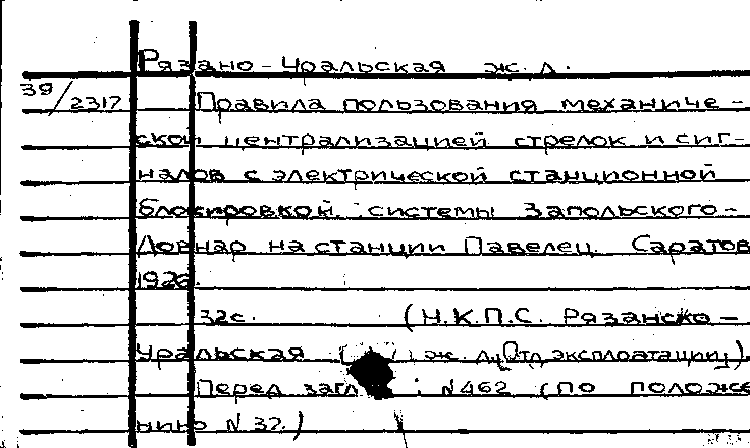 Рязано-Уральская ж. д.
39/2317 Правила пользования механиче-
ской централизацией стрелок и сиг-
налов с электрической станционной
блокировкой системы Запольского-
Довнар на станции Павелец. Саратов
1926.
32с. (Н.К.П.С. Рязанско-
Уральская ж. д. Отд. эксплоатации)
Перед загл.: N462 (по положе
нию N 37.)